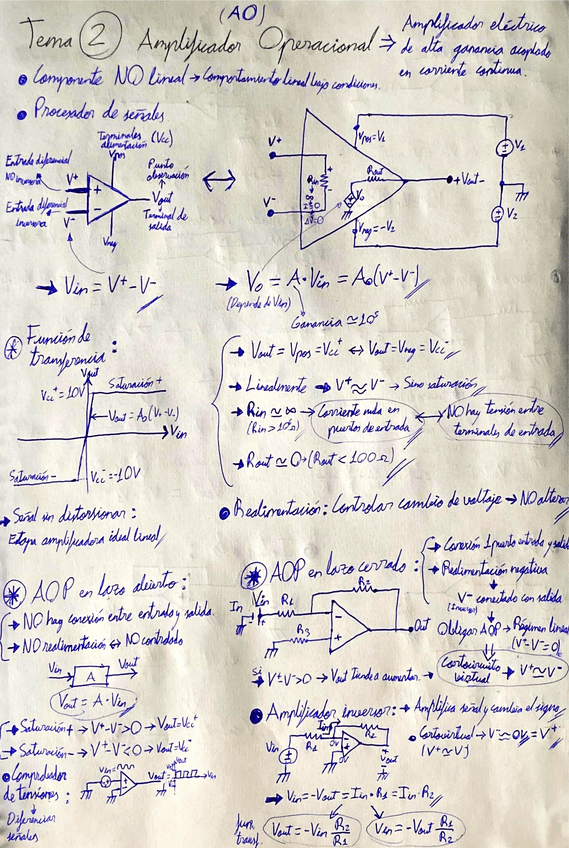 (AO)
Tema 2 Amplificador Operacional ⇒ Amplificador eléctrico
de alta ganancia acoplado
en corriente continua.
• Componente NO lineal → Comportamiento lineal bajo condiciones.
• Procesador de señales
Terminales (Vcc)
alimentación
Vpos
Entrada diferencial
NO inversora
V+
Entrada diferencial
inversora
V-
Punto
observación
Vout
Terminal de
salida
Vneg
V+
V-
Rin
Vpos=V1
Rout
Vo
Vneg=-V2
+Vout-
V1
V2
→ Vin = V+-V-
→ Vo = A·Vin = Ao(V+-V-)
(Depende de Vin)
Ganancia ≃ 10⁵
* Función de
transferencia:
Vout
Vcc+=10V
Saturación +
Vout=Ao(V+-V-)
Vin
Saturación-
Vcc-=-10V
→ Vout=Vpos=Vcc+ ↔ Vout=Vneg=Vcc-
→ Linealmente → V+≃V- → Sino saturación
→ Rin ≃ ∞ → Corriente nula en
puertos de entrada
↔ NO hay tensión entre
terminales de entrada
→ Rout ≃ 0 → (Rout < 100Ω)
→ Señal sin distorsionar:
Etapa amplificadora ideal lineal
• Realimentación: Controlar cambio de voltaje → NO alterar
* AOP en lazo abierto:
→ NO hay conexión entre entrada y salida.
→ NO realimentación ↔ NO controlado
Vin A Vout
Vout = A·Vin
→ Saturación+ → V+-V->0 → Vout=Vcc+
→ Saturación- → V+-V-<0 → Vout=Vcc-
• Comprobador
de tensiones:
Vin
Vout
Diferenciar
señales
* AOP en lazo cerrado:
→ Conexión 1 puerto entrada y salida
→ Realimentación negativa
V- conectado con salida
(Inversor)
Obligar AOP → Régimen lineal
(V+-V-=0)
Cortocircuito
virtual
→ V+≃V-
In
Vin
R1
R2
R3
Out
si
→ V+-V->0 → Vout tiende a aumentar →
• Amplificador inversor: → Amplifica señal y cambia el signo
• Cortovirtual → V-≃0V=V+
(V+≃V-)
Vin
R1
R2
0V
Vout
→ Vin=-Vout=Iin·R1=Iin·R2
func.
transf.
Vout=-Vin R2/R1
Vin=-Vout R1/R2